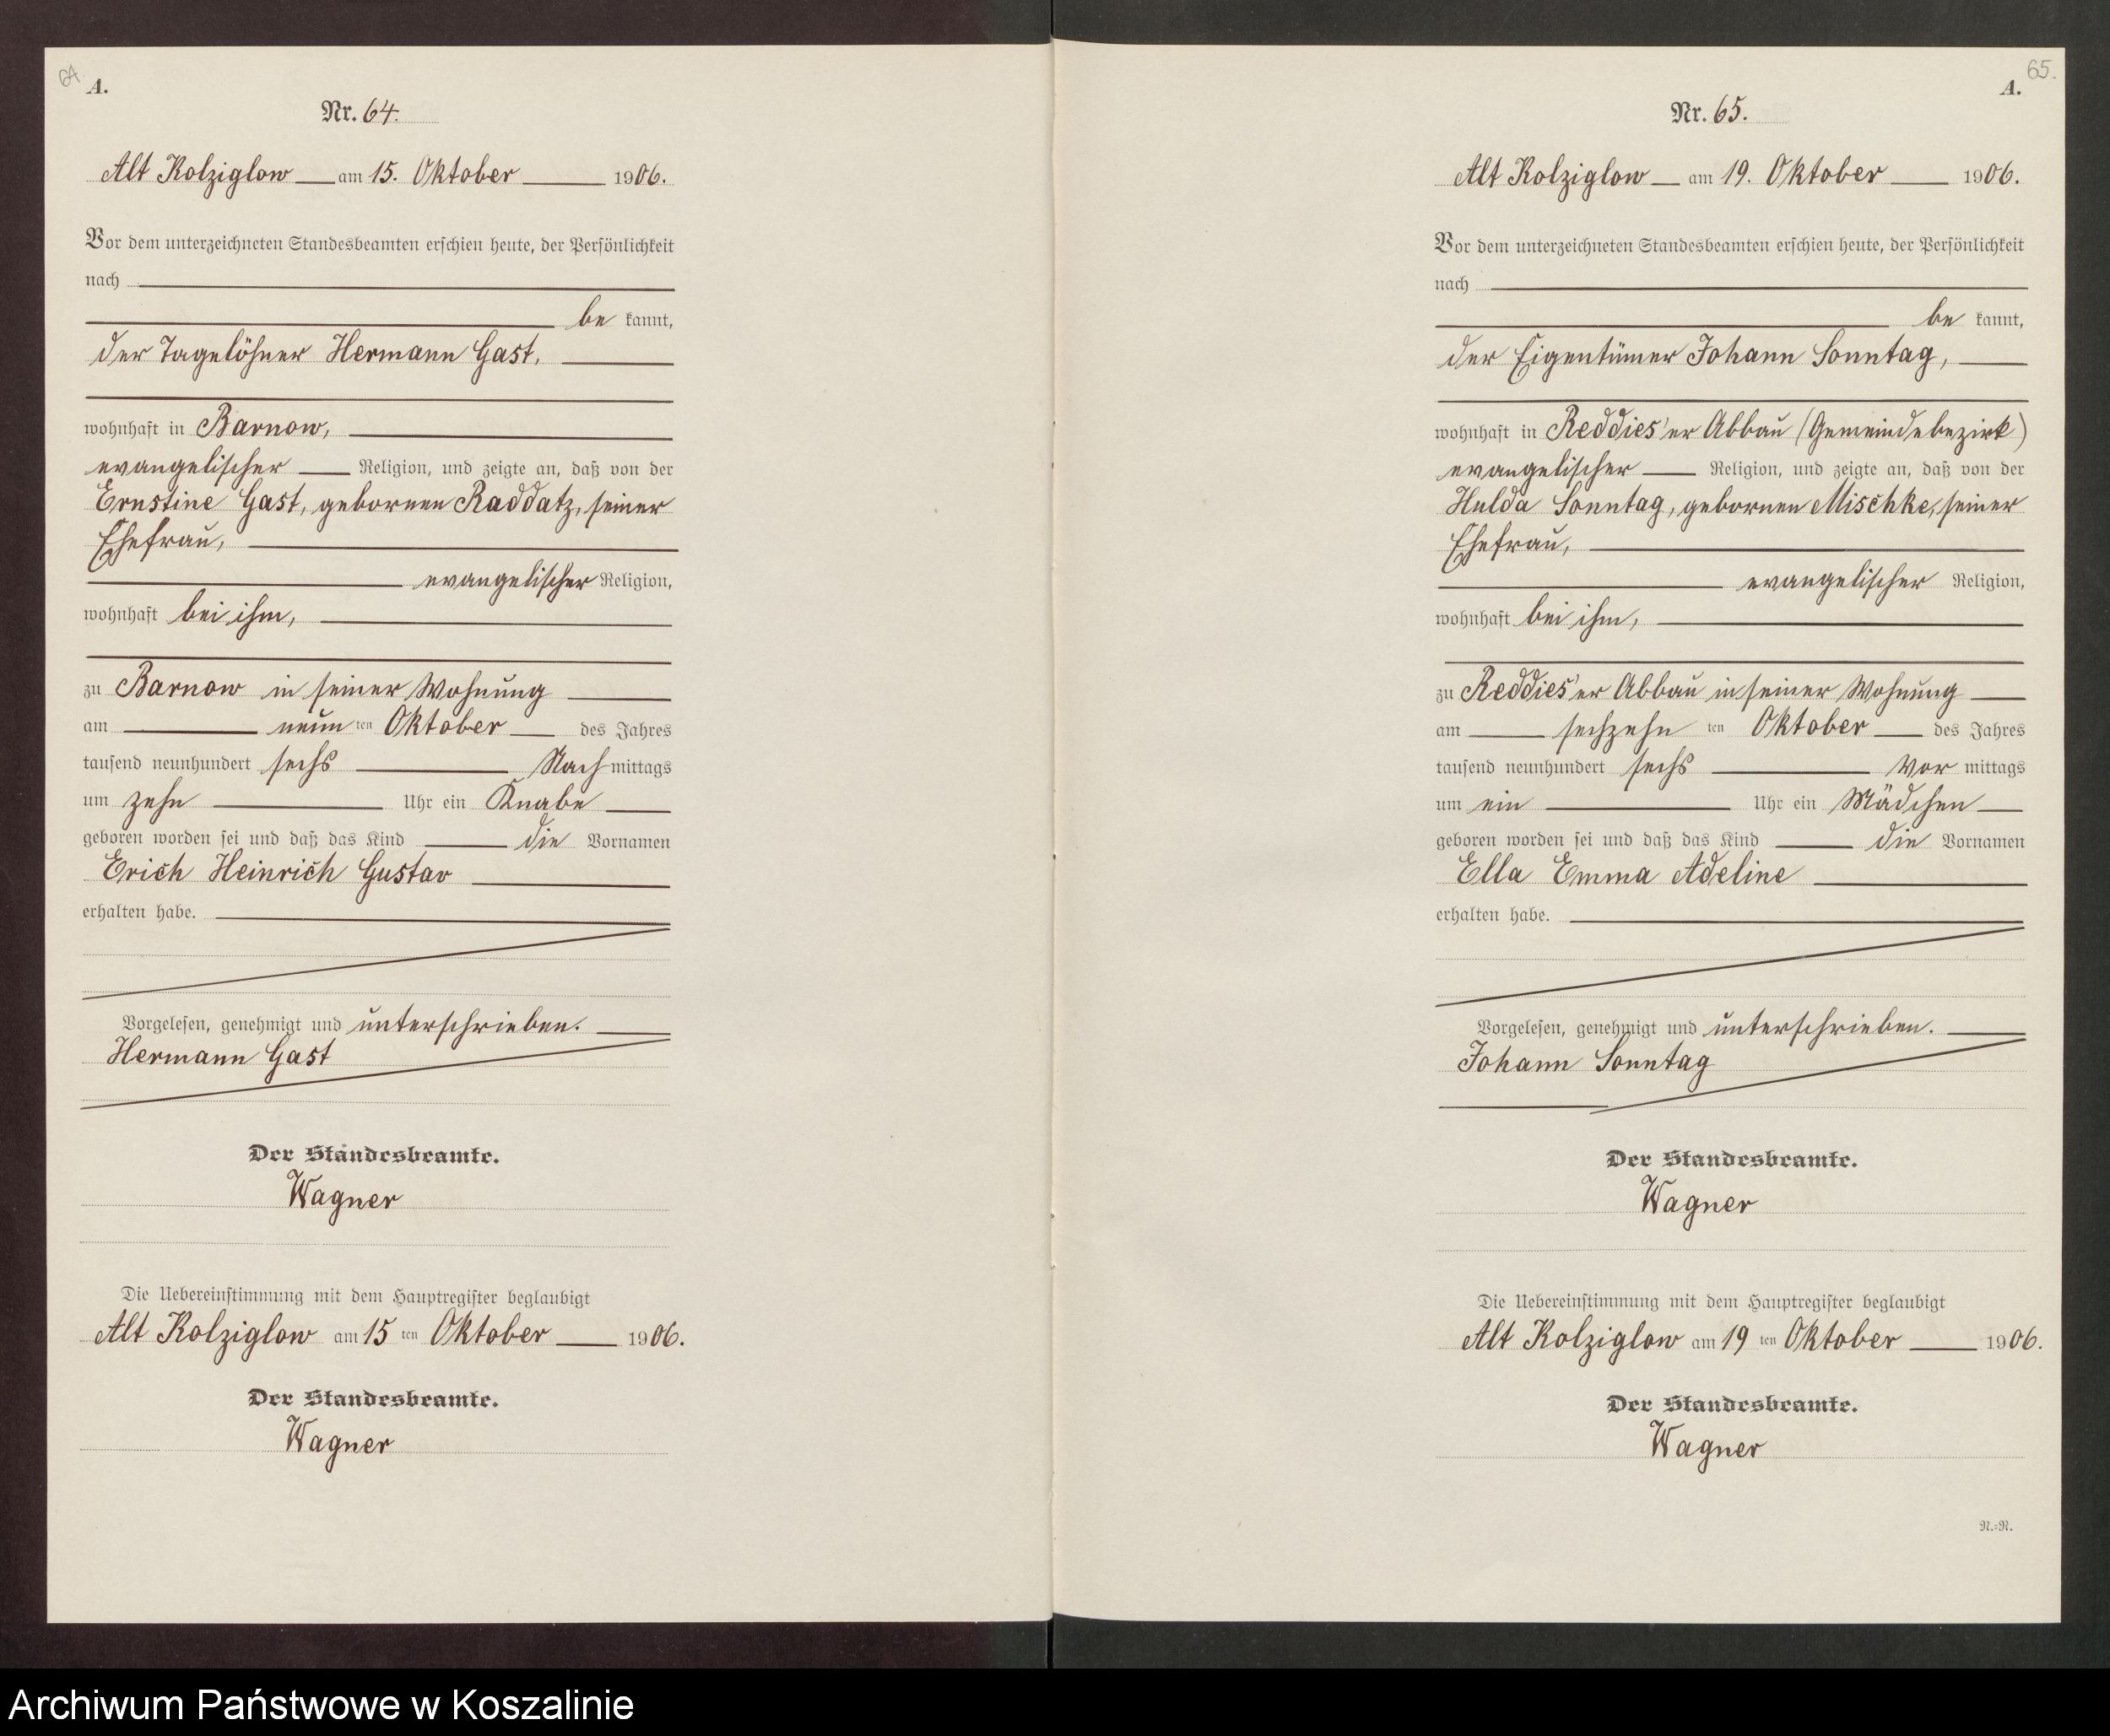 64.
A.
Nr. 64.
Alt Kolziglow am 15. Oktober 1906.
Vor dem unterzeichneten Standesbeamten erschien heute, der Persönlichkeit
nach
be kannt,
der Tagelöhner Hermann Gast,
wohnhaft in Barnow,
evangelischer Religion, und zeigte an, daß von der
Ernstine Gast, gebornen Raddatz, seiner
Ehefrau,
evangelischer Religion,
wohnhaft bei ihm,
zu Barnow in seiner Wohnung
am neun ten Oktober des Jahres
tausend neunhundert sechs Nach mittags
um zehn Uhr ein Knabe
geboren worden sei und daß das Kind die Vornamen
Erich Heinrich Gustav
erhalten habe.
Vorgelesen, genehmigt und unterschrieben.
Hermann Gast
Der Standesbeamte.
Wagner
Die Uebereinstimmung mit dem Hauptregister beglaubigt
Alt Kolziglow am 15 ten Oktober 1906.
Der Standesbeamte.
Wagner
65.
A.
Nr. 65.
Alt Kolziglow am 19. Oktober 1906.
Vor dem unterzeichneten Standesbeamten erschien heute, der Persönlichkeit
nach
be kannt,
der Eigentümer Johann Sonntag,
wohnhaft in Reddies'er Abbau (Gemeindebezirk)
evangelischer Religion, und zeigte an, daß von der
Hulda Sonntag, gebornen Mischke, seiner
Ehefrau,
evangelischer Religion,
wohnhaft bei ihm,
zu Reddies'er Abbau in seiner Wohnung
am sechzehn ten Oktober des Jahres
tausend neunhundert sechs Vor mittags
um ein Uhr ein Mädchen
geboren worden sei und daß das Kind die Vornamen
Ella Emma Adeline
erhalten habe.
Vorgelesen, genehmigt und unterschrieben.
Johann Sonntag
Der Standesbeamte.
Wagner
Die Uebereinstimmung mit dem Hauptregister beglaubigt
Alt Kolziglow am 19 ten Oktober 1906.
Der Standesbeamte.
Wagner
N.=N.
Archiwum Państwowe w Koszalinie